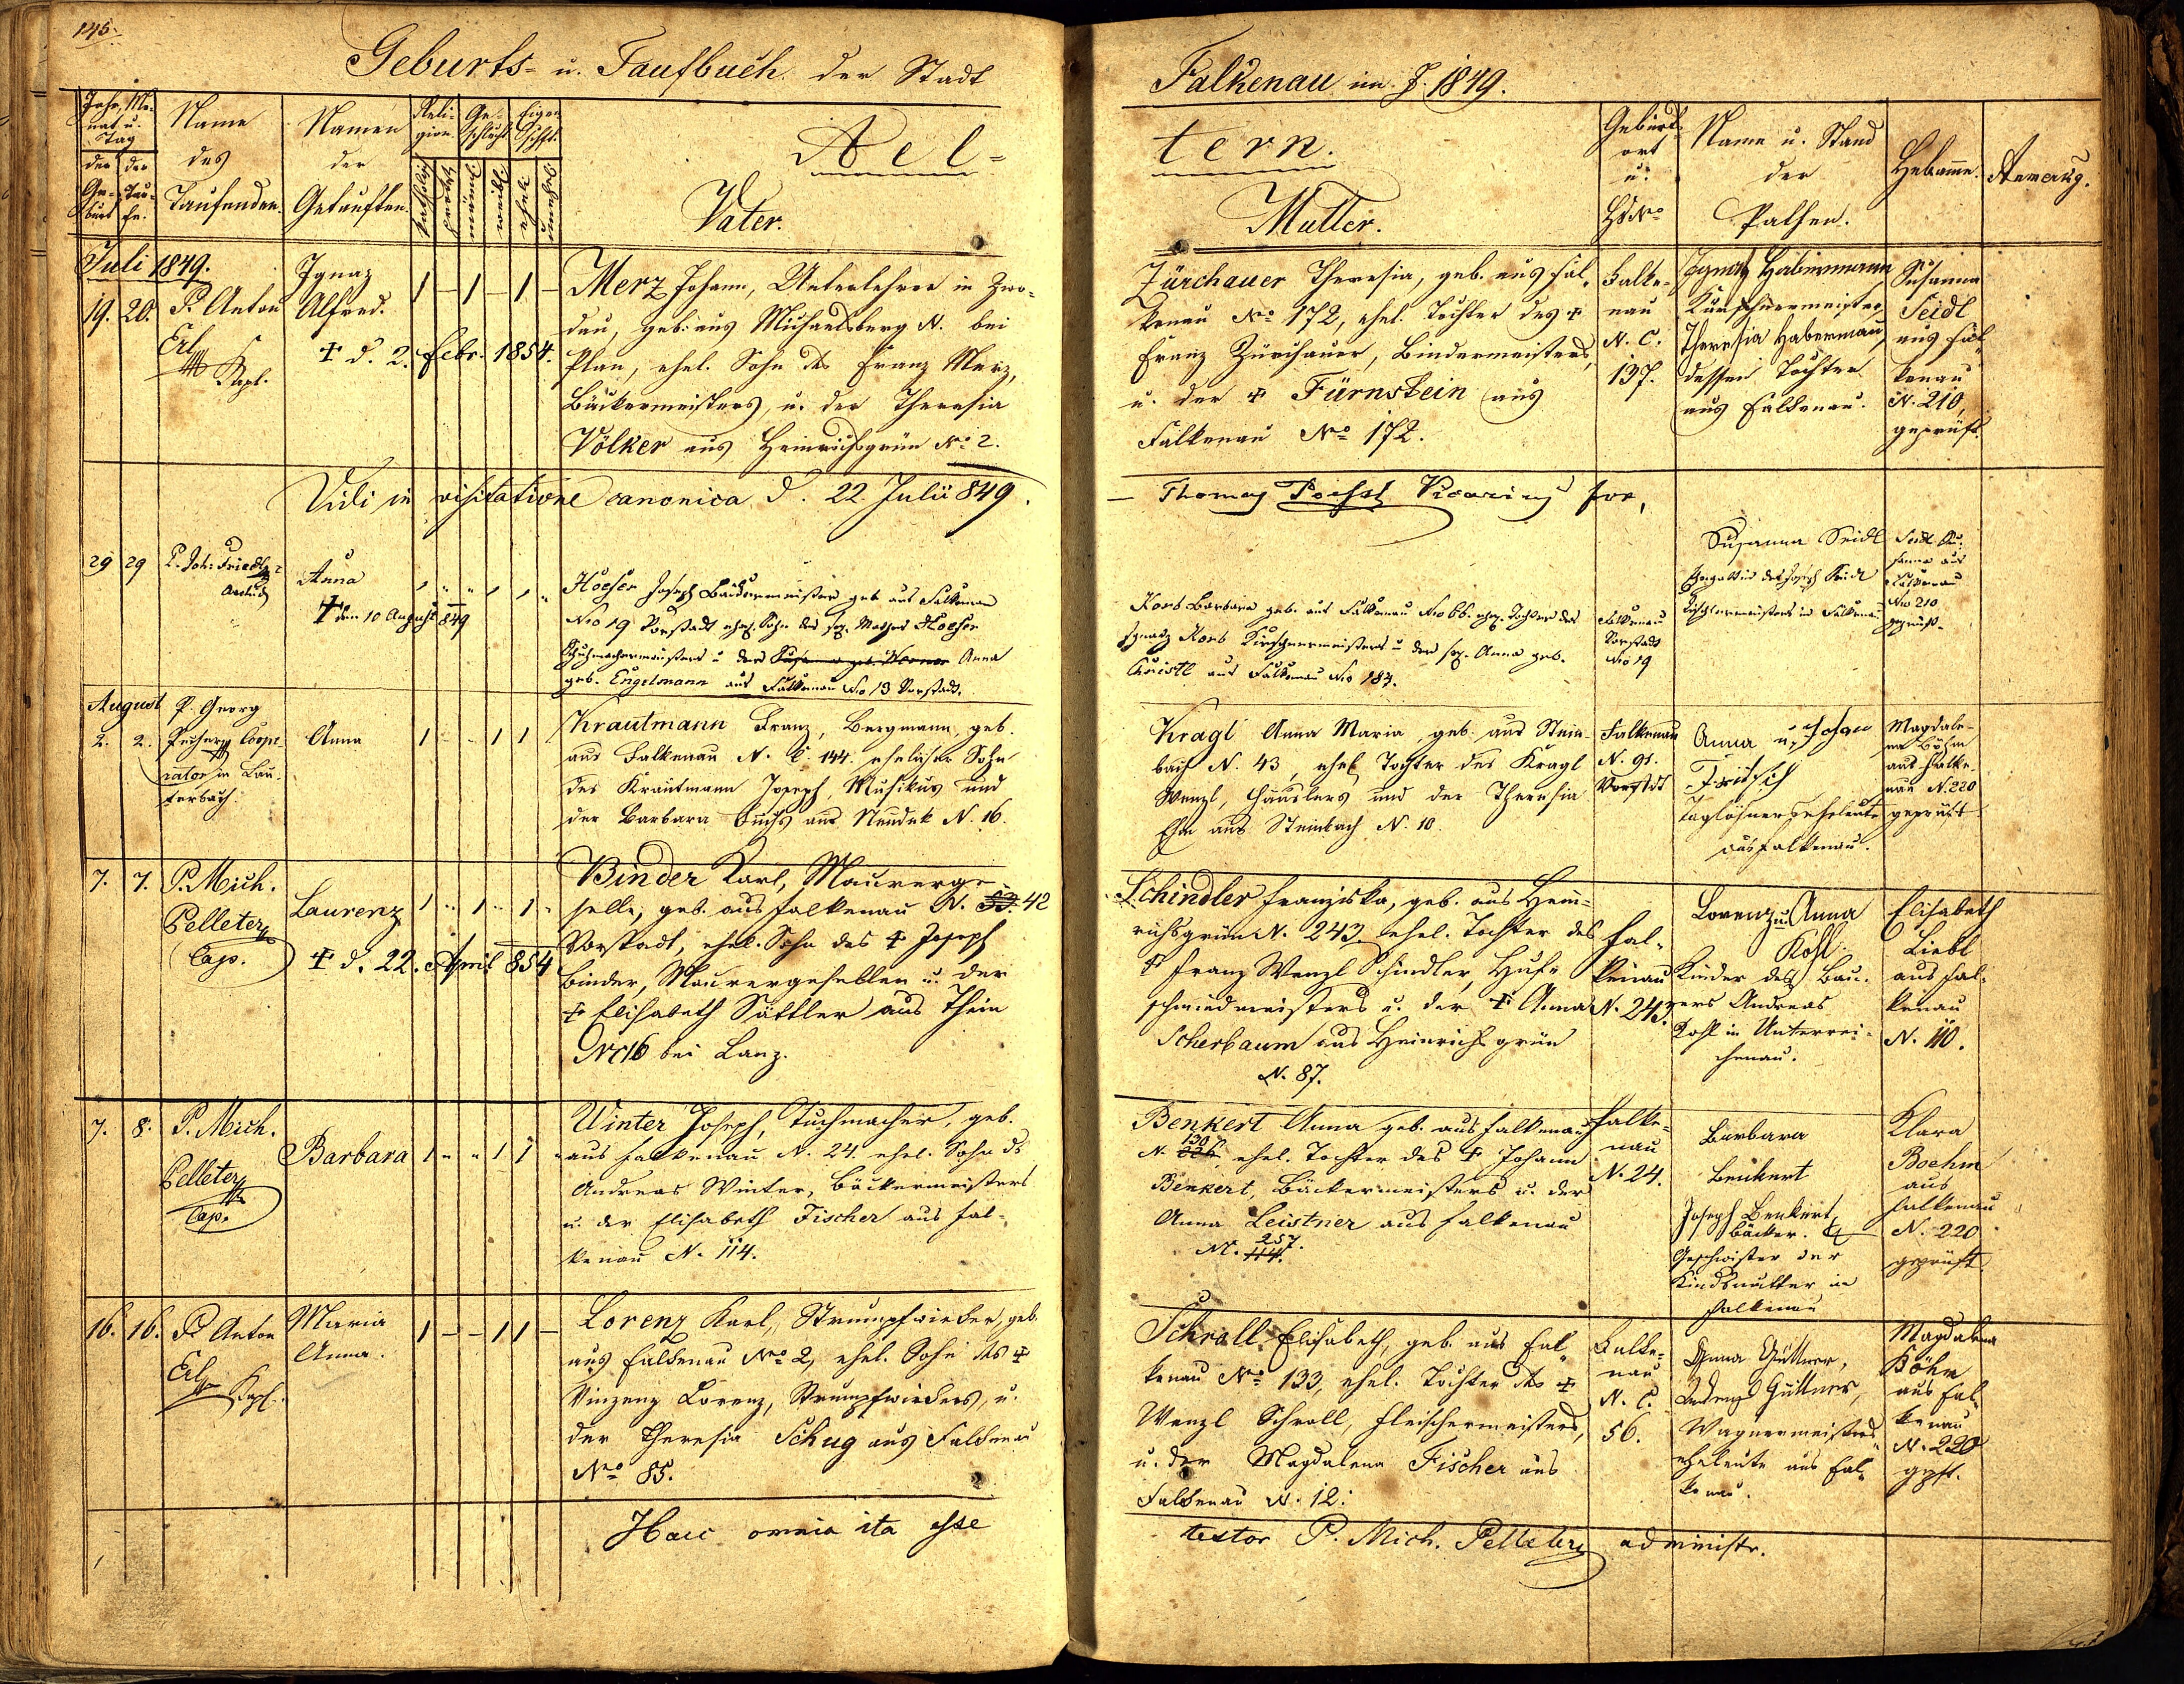 145.
Geburts- u. Taufbuch der Stadt
Falkenau im J. 1849.
Jahr, Mo-
nat u.
Tag
der
Ge-
burt
der
Tau-
fe.
Name
des
Taufenden.
Namen
der
Getauften.
Reli-
gion
Ge-
schlecht
Eigen
schft.
katholisch
männl
weibl
ehel.
unehel
Ael-
tern.
Vater.
Mutter.
Geburts-
ort
u.
HsNo
Name u. Stand
der
Pathen.
Hebamme.
Anmerkg.
Juli 1849.
19. 20. P. Anton
Erl
Kapl.
Ignaz
Alfred.
✝ d. 2. Febr. 1854.
1 – 1 – 1 –
Merz Johann, Unterlehrer in Zwo-
dau, geb. aus Michaelsberg N. bei
Plan, ehel. Sohn des Franz Merz,
Bäckermeisters, u. der Theresia
Völker aus Heinrichsgrün No 2.
Zürchauer Theresia, geb. aus Fal-
kenau No 172, ehel. Tochter des ✝
Franz Zürchauer, Bindermeisters,
u. der ✝ Fürnstein aus
Falkenau No 172.
Falke-
nau
N. C.
137.
Ignatz Habermann
Kürschnermeister,
Theresia Haberman,
dessen Tochter
aus Falkenau.
Susanna
Seidl
aus Fal-
kenau
N. 210,
geprüft.
Vidi in visitatione canonica d. 22 Julii 849.
– Thomas Poehsl Vicarius for,
29 29 P. Joh. Friedl
Anna
✝ den 10 August 849
Hoefer Joseph Bäckermeister geb aus Falkenau
No 19 Vorstadt ehel. Sohn des sel. Mathes Hoefer
Schuhmachermeisters u der Susanna geb. Werner Anna
geb. Engelmann aus Falkenau No 13 Vorstadt.
Korb Barbara geb. aus Falkenau No 66. ehel. Tochter des
Ignatz Korb Kürschnermeisters u der sel. Anna geb.
Christl aus Falkenau No 187.
Falkenau
Vorstadt
No 19
Susanna Seidl
Ehegattin des Joseph Seidl
Tischlermeisters in Falkenau
Seidl Su-
sanna aus
Falkenau
No 210
geprüft.
August
2. 2. P. Georg
Pecher Coope-
rator in Lau-
terbach.
Anna
1 - - 1 1
Krautmann Franz, Bergmann, geb.
aus Falkenau N. C. 144. ehelicher Sohn
des Krautmann Joseph, Musikus und
der Barbara Fuchs aus Neudek N. 16.
Kragl Anna Maria, geb. aus Stein-
bach N. 43, ehel. Tochter des Kragl
Wenzl, Häuslers und der Theresia
Ehm aus Steinbach N. 10.
Falkenau
N. 91.
Vorstdt
Anna u. Johan
Fritsch
Taglöhnerseheleute
aus Falkenau.
Magdale-
na Böhm
aus Falke-
nau N. 220
geprüft
7. 7. P. Mich.
Pelleter
Cap.
Laurenz
✝ d. 22. April 854
1 „ 1 „ 1 „
Binder Karl, Maurerge-
selle, geb. aus Falkenau N. 53. 42
Vorstadt, ehel. Sohn des ✝ Joseph
Binder, Maurergesellen u. der
✝ Elisabeth Sattler aus Thein
No 16 bei Lanz.
Schindler Franziska, geb. aus Hein-
richsgrün N. 243. ehel. Tochter des
✝ Franz Wenzl Schindler, Huf-
schmiedmeisters u. der ✝ Anna
Scherbaum aus Heinrichsgrün
N. 87.
Fal-
kenau
N. 243.
Lorenz u. Anna
Kohl
Kinder des Bau-
ers Andreas
Kohl in Unterrei-
chenau.
Elisabeth
Liebl
aus Fal-
kenau
N. 110.
7. 8. P. Mich.
Pelleter
Cap.
Barbara
1 „ „ 1 1 „
Winter Joseph, Tuchmacher, geb.
aus Falkenau N. 24. ehel. Sohn ds
Andreas Winter, Bäckermeisters
u. der Elisabeth Fischer aus Fal-
kenau N. 114.
Benkert Anna geb. aus Falkenau
130
N. 226, ehel. Tochter des ✝ Johann
Benkert, Bäckermeisters u. der
Anna Leistner aus Falkenau
257.
N. 114.
Falke-
nau
N. 24.
Barbara
Benkert
Joseph Benkert,
Bäcker.
Geschwister der
Kindsmutter in
Falkenau
Klara
Boehm
aus
Falkenau
N. 220
geprüft.
16. 16. P. Anton
Erl
Kapl.
Maria
Anna.
1 – – 1 1 –
Lorenz Karl, Strumpfwirker, geb.
aus Falkenau No 2, ehel. Sohn des ✝
Vinzenz Lorenz, Strumpfwirkers, u.
der Theresia Schug aus Falkenau
No 85.
Schrall Elisabeth, geb. aus Fal-
kenau No 133, ehel. Tochter des ✝
Wenzl Schroll, Fleischermeisters,
u. der Magdalena Fischer aus
Falkenau N. 12.
Falke-
nau
N. C.
56.
Anna Güttner,
Güttner,
Wagnermeisters-
eheleute aus Fal-
kenau.
Magdalena
Böhm
aus Fal-
kenau
N. 220
gpft.
Haec omnia ita esse
testor P. Mich. Pelleter administr.